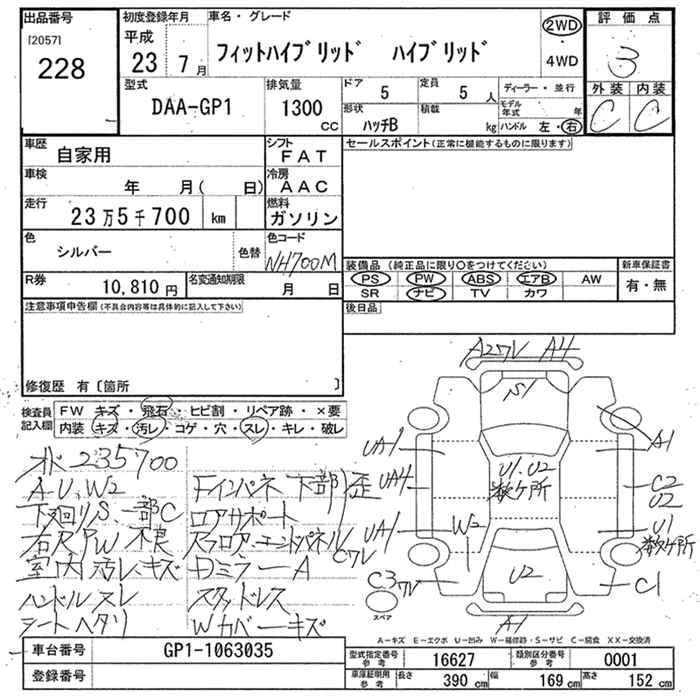 出品番号
[2057]
228
初度登録年月
平成
23 7月
車名・グレード
フィットハイブリッド ハイブリッド
2WD
4WD
評価点
3
外装 内装
C C
型式
DAA-GP1
排気量
1300
cc
ドア 5
定員 5 人
形状
ハッチB
積載
kg
ディーラー・並行
モデル年式 年
ハンドル 左・右
車歴
自家用
シフト
FAT
車検
年 月( 日)
冷房
AAC
走行
23万5千700 km
燃料
ガソリン
色
シルバー
色替
色コード
NH700M
R券
10,810 円
名変通知期限
月 日
セールスポイント(正常に機能するものに限ります)
装備品 (純正品に限り○をつけてください)
PS PW ABS エアB AW
SR ナビ TV カワ
新車保証書
有・無
後日品
注意事項申告欄(不具合内容等は具体的に記入して下さい)
修復歴 有〔箇所 〕
検査員記入欄
FW キズ・飛石・ヒビ割・リペア跡・×要
内装 キズ・汚レ・コゲ・穴・スレ・キレ・破レ
235700
A.U.W2
下廻りS、一部C
右尺PW不良
室内汚レキズ
ハンドルスレ
シートヘタリ
Fインパネ下部歪
ロアサポート
スフロア、エンドパネル
Dミラー A
スタッドレス
Wカバーキズ
A4
S1
UA1
UA4
UA1
A1
C2
U2
U1.U2
数ヶ所
U1
数ヶ所
W2
U2
C1
A1
スペア
A-キズ E-エクボ U-凹み W-補修跡・S-サビ C-腐食 XX-交換済
車台番号
GP1-1063035
登録番号
型式指定番号
参考
16627
類別区分番号
参考
0001
車庫証明用
参考
長さ 390 cm
幅 169 cm
高さ 152 cm